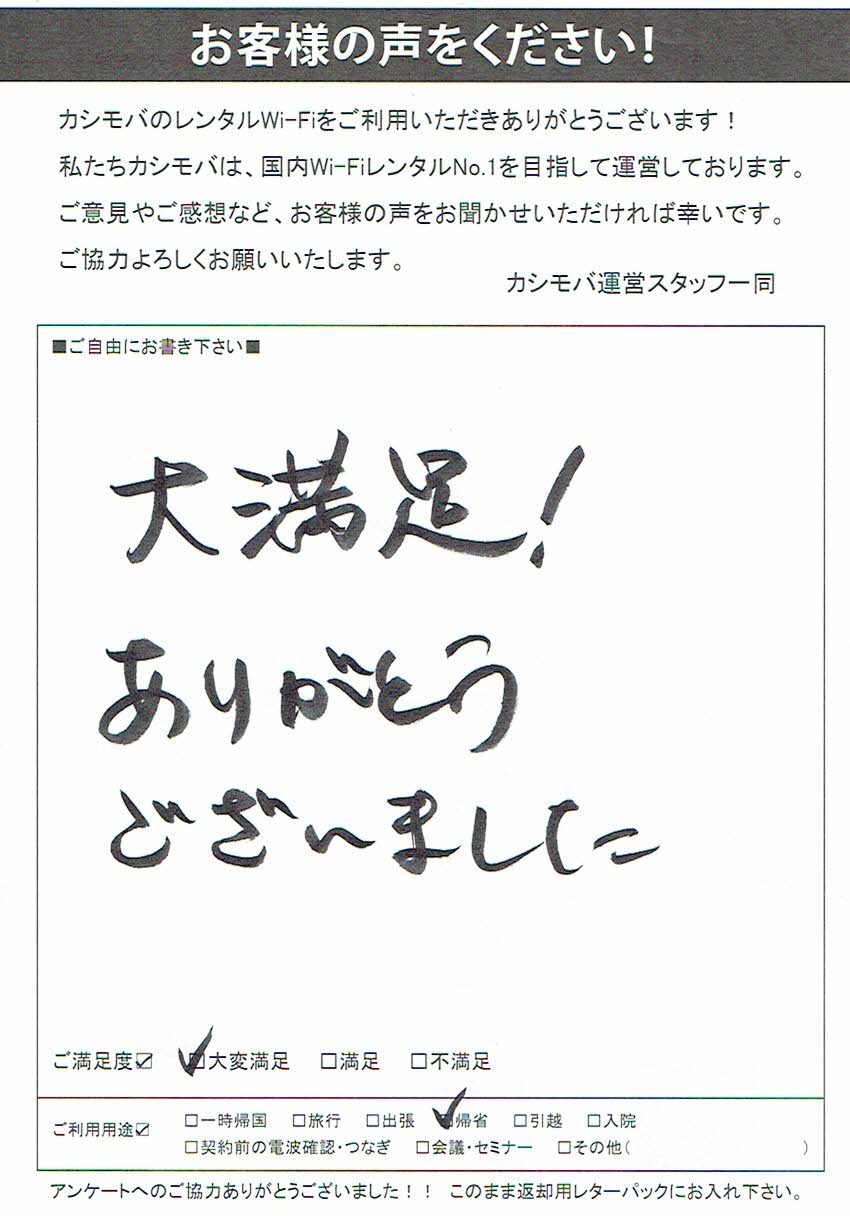 お客様の声をください!
カシモバのレンタルWi-Fiをご利用いただきありがとうございます!
私たちカシモバは、国内Wi-FiレンタルNo.1を目指して運営しております。
ご意見やご感想など、お客様の声をお聞かせいただければ幸いです。
ご協力よろしくお願いいたします。
カシモバ運営スタッフ一同
■ご自由にお書き下さい■
大満足!
ありがとう
ございました
ご満足度☑ ☑大変満足 □満足 □不満足
ご利用用途☑ □一時帰国 □旅行 □出張 ☑帰省 □引越 □入院
□契約前の電波確認・つなぎ □会議・セミナー □その他( )
アンケートへのご協力ありがとうございました!! このまま返却用レターパックにお入れ下さい。